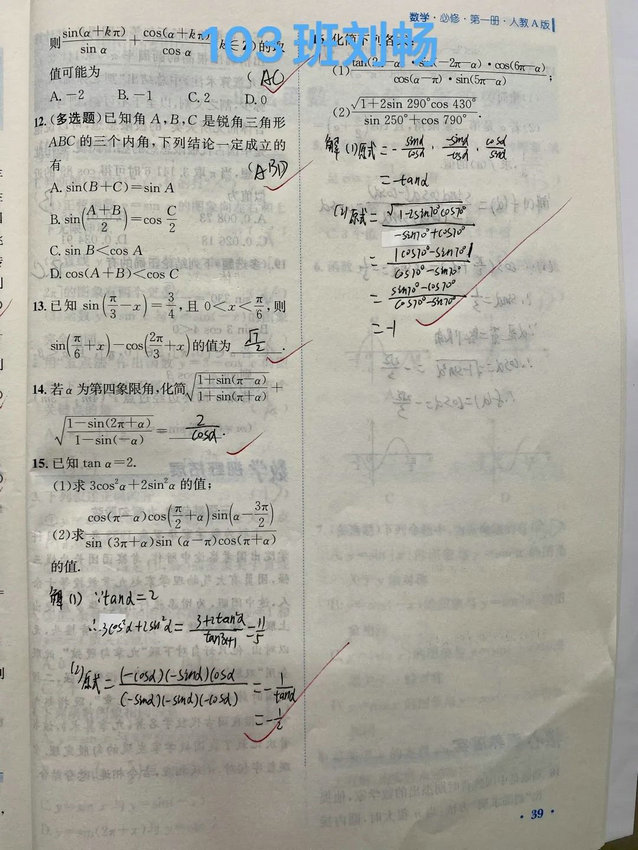 103班刘畅
数学·必修·第一册·人教A版
则$\frac{\sin(α+kπ)}{\sin α}+\frac{\cos(α+kπ)}{\cos α}$(k∈Z)的
值可能为 (AC)
A. -2 B. -1 C. 2 D. 0
12. (多选题)已知角A,B,C是锐角三角形
ABC的三个内角,下列结论一定成立的
有 (ABD)
A. sin(B+C)=sin A
B. $\sin\left(\frac{A+B}{2}\right)=\cos\frac{C}{2}$
C. sin B<cos A
D. cos(A+B)<cos C
13. 已知$\sin\left(\frac{π}{3}-x\right)=\frac{3}{4}$,且$0<x<\frac{π}{6}$,则
$\sin\left(\frac{π}{6}+x\right)-\cos\left(\frac{2π}{3}+x\right)$的值为
14. 若α为第四象限角,化简$\sqrt{\frac{1+\sin(π-α)}{1+\sin(π+α)}}+$
$\sqrt{\frac{1-\sin(2π+α)}{1-\sin(-α)}}=\frac{2}{\cosα}$.
15. 已知tan α=2.
(1)求3cos²α+2sin²α的值;
(2)求$\frac{\cos(π-α)\cos\left(\frac{π}{2}+α\right)\sin\left(α-\frac{3π}{2}\right)}{\sin(3π+α)\sin(α-π)\cos(π+α)}$
的值.
解(1) ∵tanα=2
∴3cos²α+2sin²α=$\frac{3+2\tan²α}{\tan²α+1}=\frac{11}{5}$
(2)原式=$\frac{(-\cosα)(-\sinα)\cosα}{(-\sinα)(-\sinα)(-\cosα)}=-\frac{1}{\tanα}$
=$-\frac{1}{2}$
化简下列各
(1)$\frac{\tan(2π-α)·\sin(-2π-α)·\cos(6π-α)}{\cos(α-π)·\sin(5π-α)}$;
(2)$\frac{\sqrt{1+2\sin 290°\cos 430°}}{\sin 250°+\cos 790°}$.
解(1)原式=$-\frac{\sinα}{\cosα}·\frac{-\sinα}{-\cosα}·\frac{\cosα}{\sinα}$
=-tanα
(2)原式=$\frac{\sqrt{1-2\sin70°\cos70°}}{-\sin70°+\cos70°}$
=$\frac{|\cos70°-\sin70°|}{\cos70°-\sin70°}$
=$\frac{\sin70°-\cos70°}{\cos70°-\sin70°}$
=-1
·39·